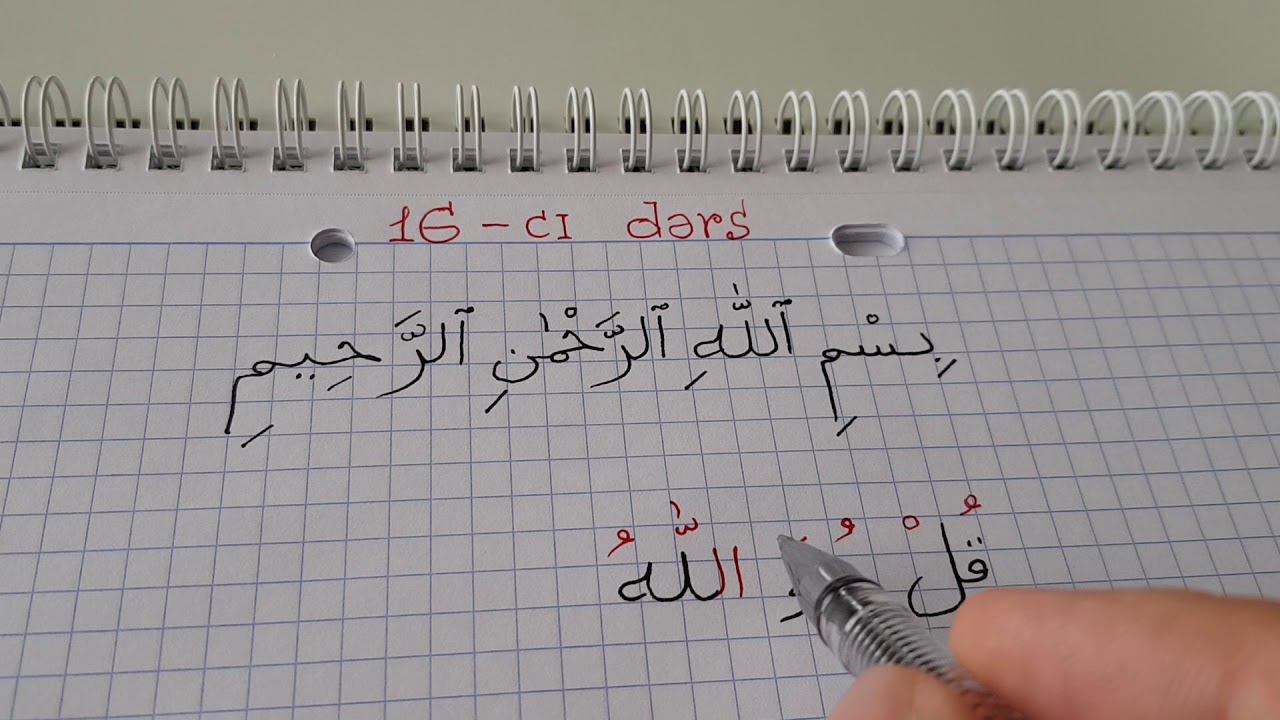 16-cı dərs
بِسْمِ ٱللّٰهِ ٱلرَّحْمٰنِ ٱلرَّحِيمِ
قُلْ اللّٰهُ